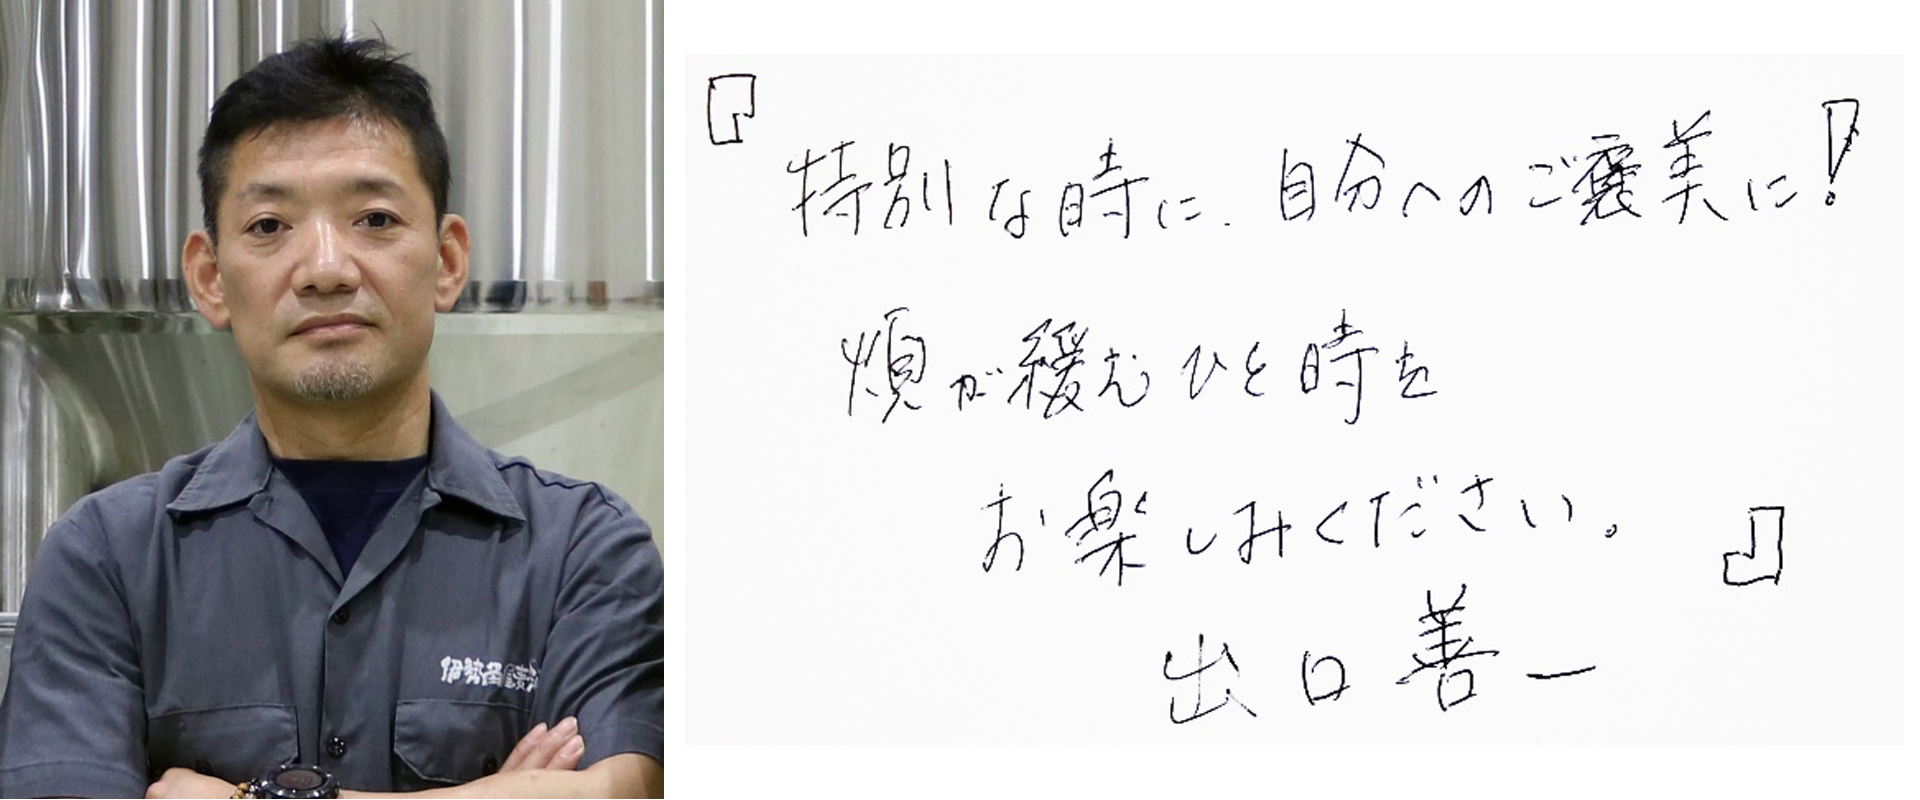 伊勢角屋麦
『特別な時に、自分へのご褒美に!
煩が緩むひと時を
お楽しみください。』
出口善一